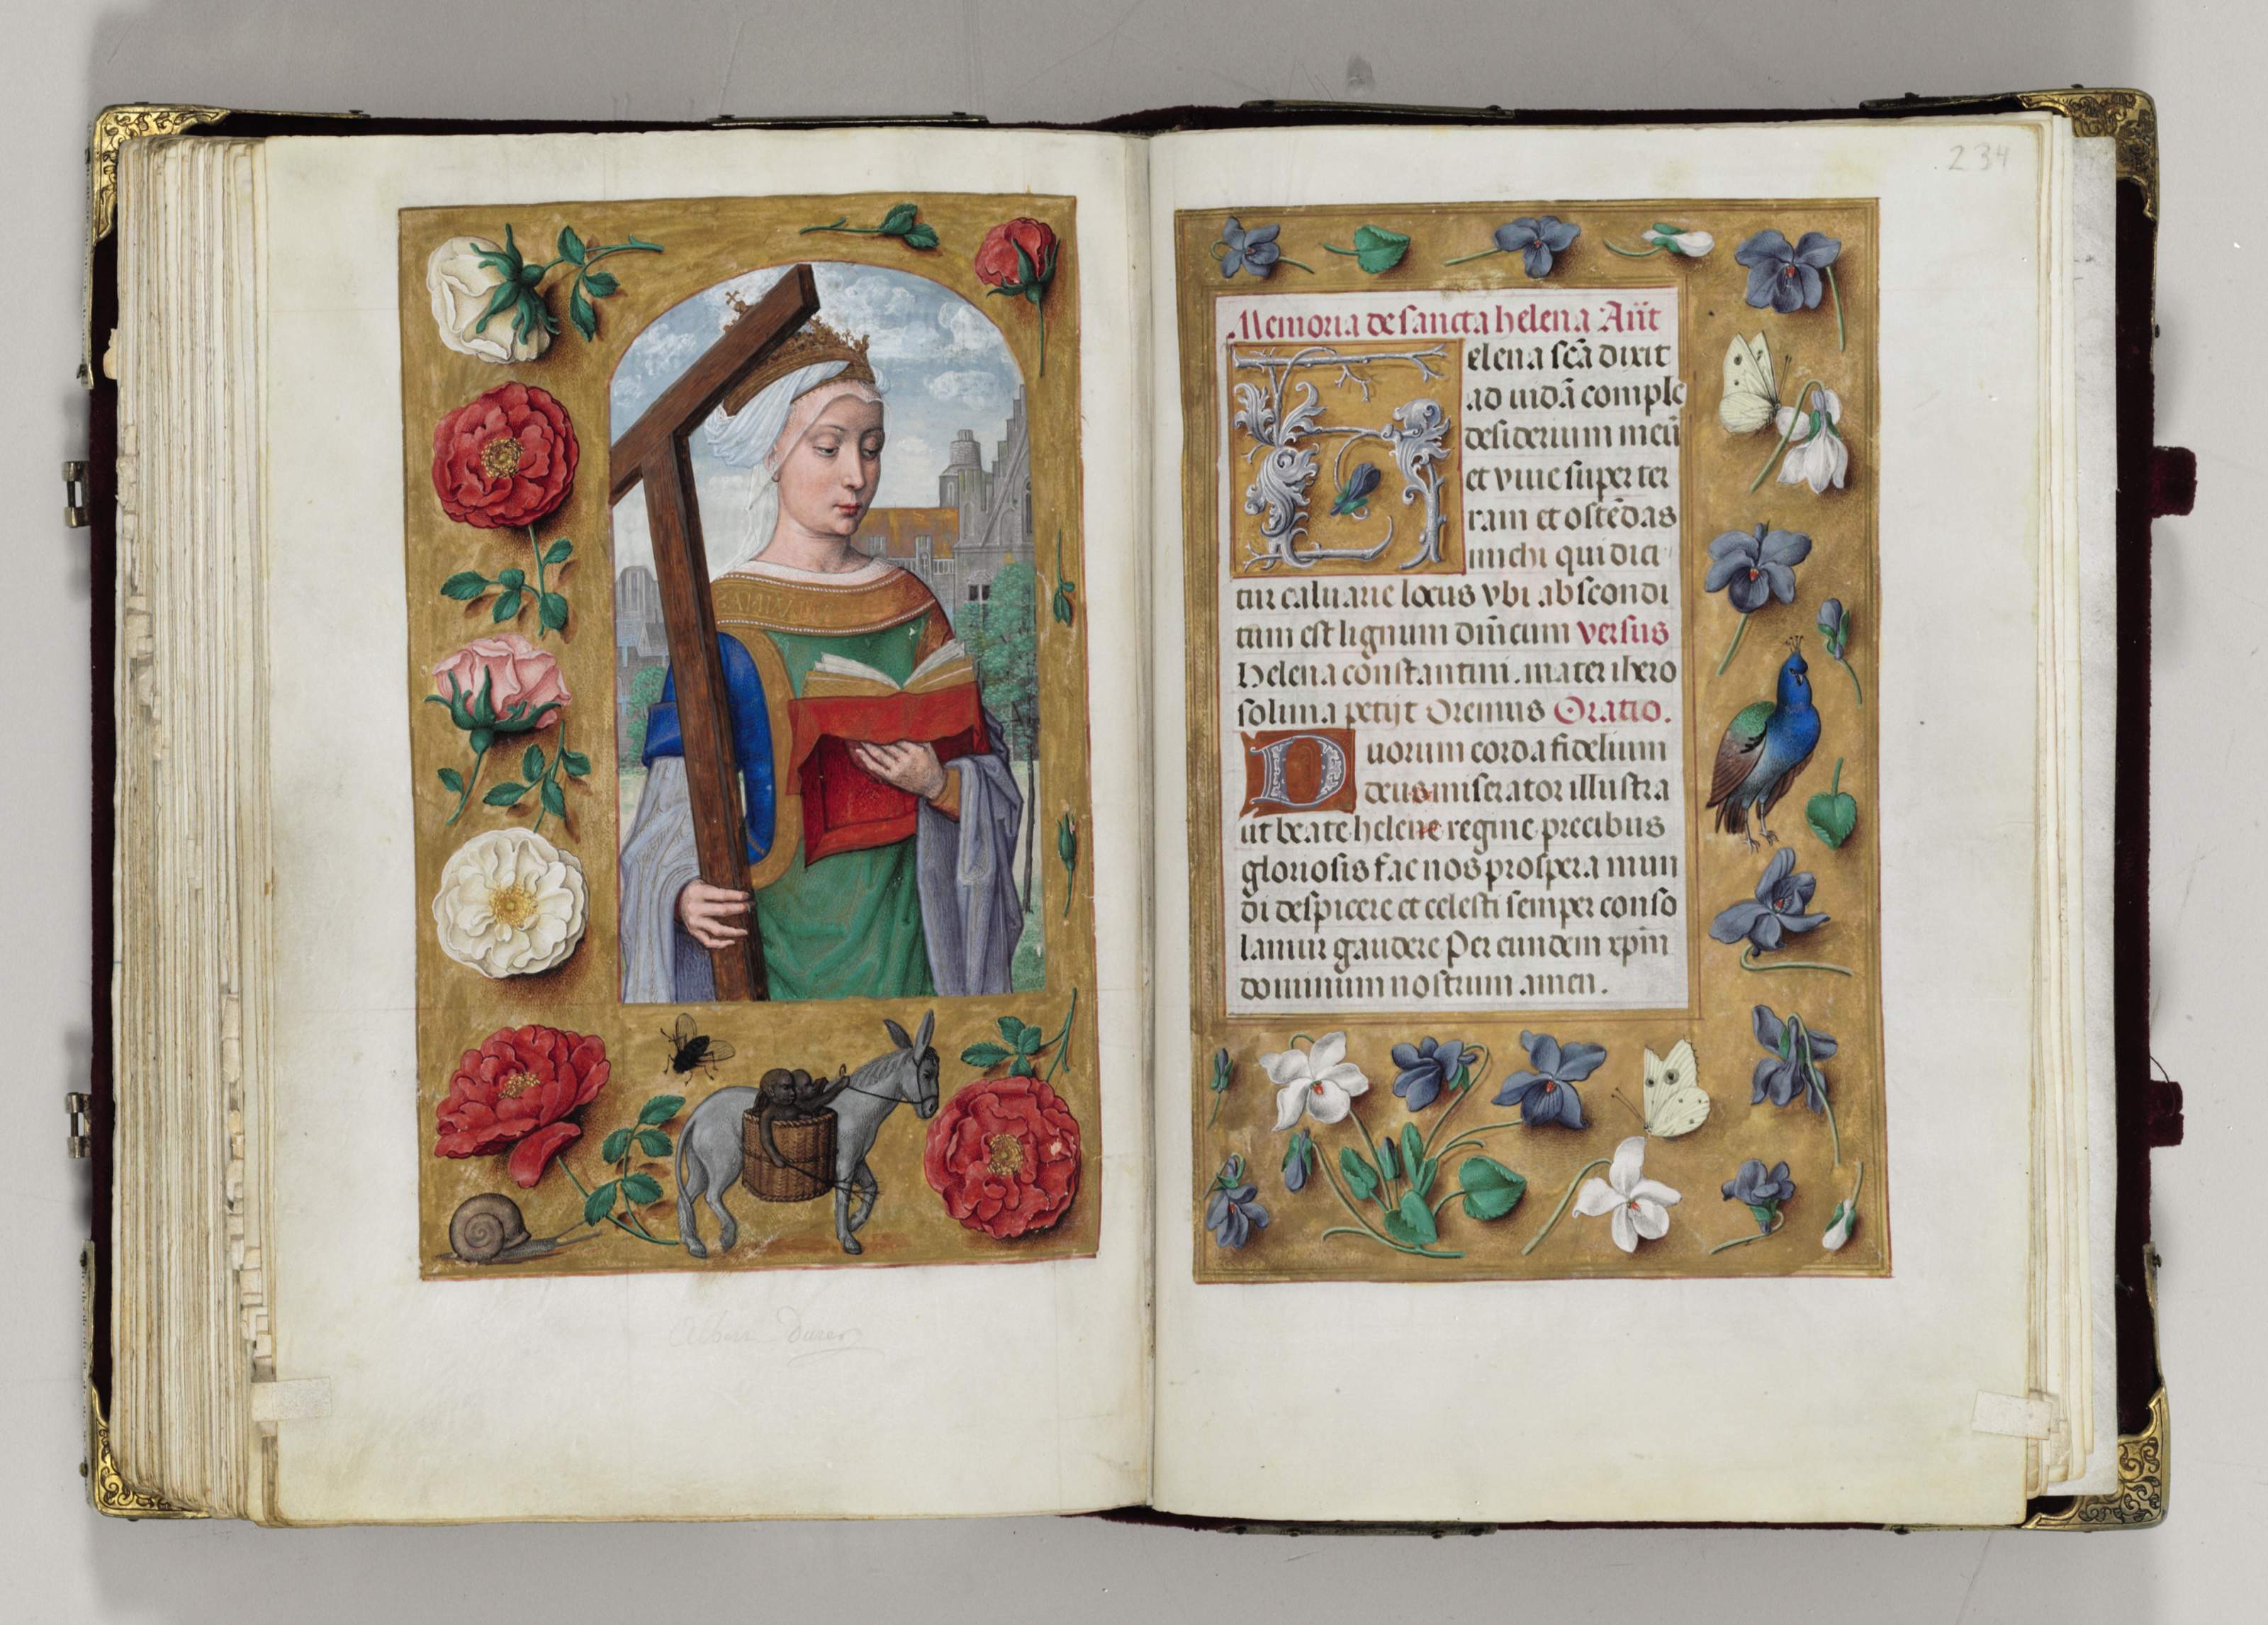 Albert Durer
234
Memoria de sancta helena Añt
elena scã dixit
ad iudã comple
desiderium meũ
et viue super ter
ram et ostẽdas
michi qui dici
tur caluarie locus vbi abscondi
tum est lignum dñicum versus
Helena constantini mater ihero
solima petijt Oremus Oratio.
Duorum corda fidelium
deus miserator illustra
ut beate helene regine precibus
gloriosis fac nos prospera mun
di despicere et celesti semper conso
lamur gaudere Per eundem xp̃m
dominum nostrum amen.